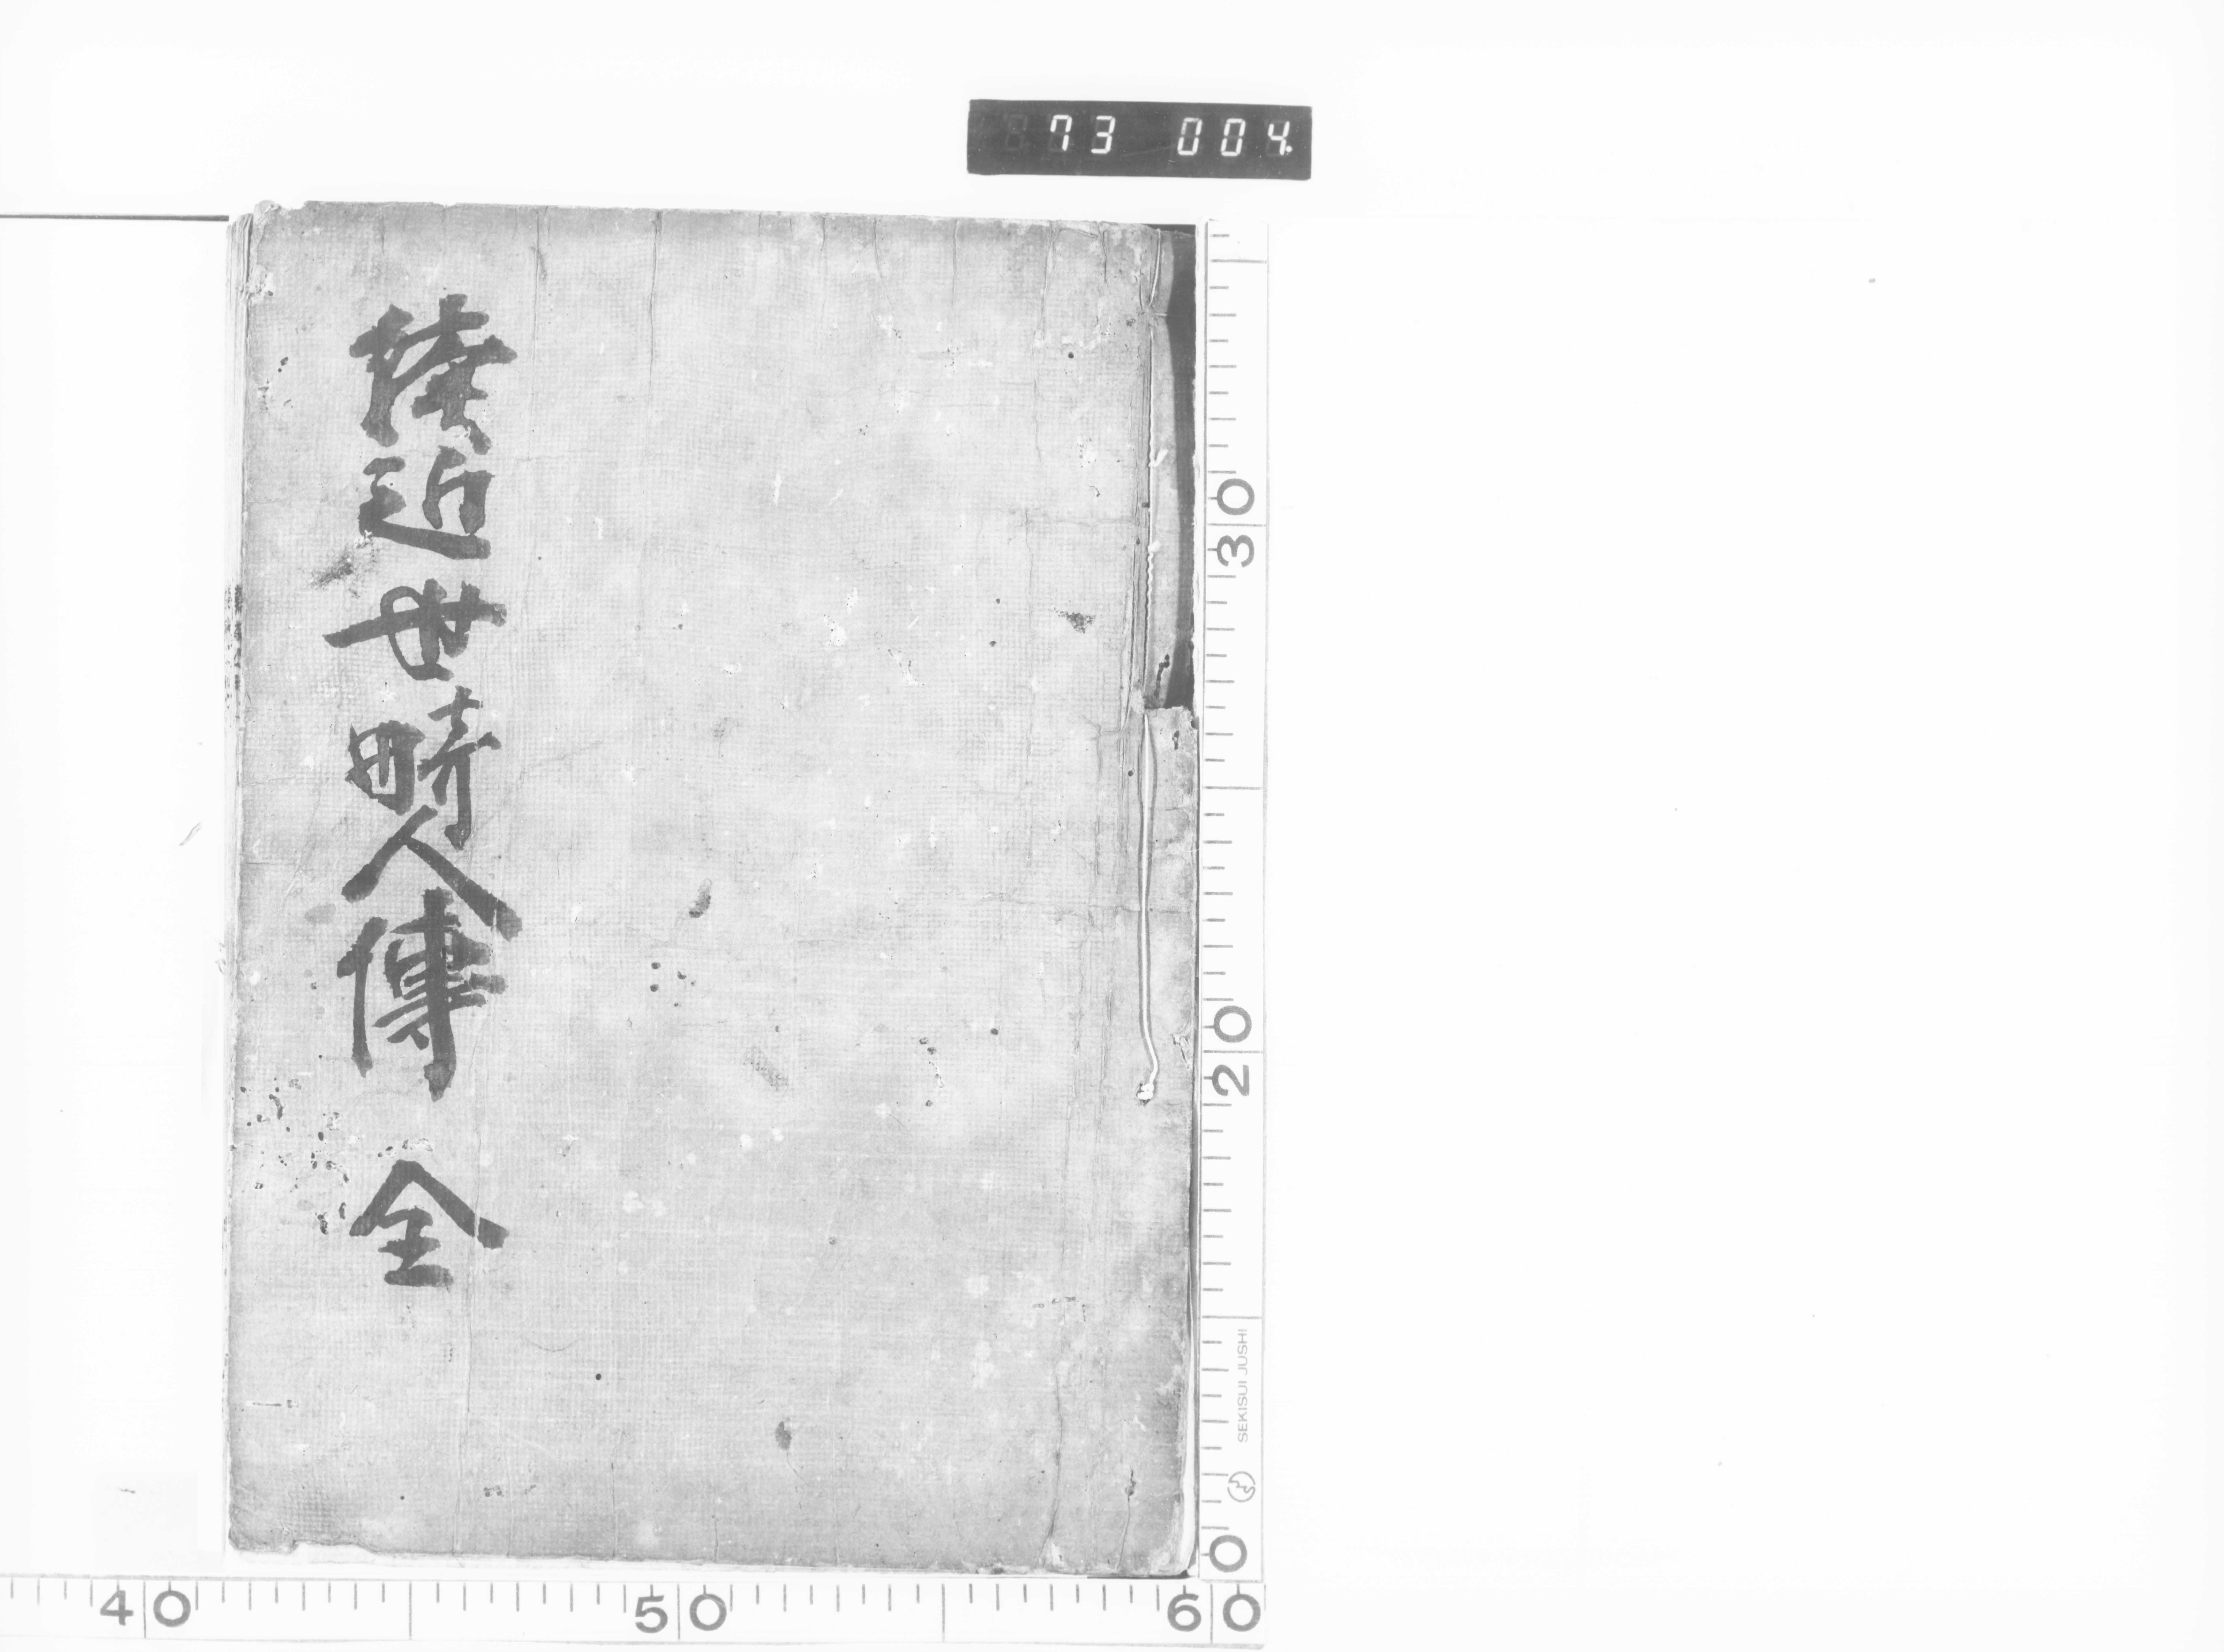 73 004.
続近世畸人傳 全
30
20
SEKISUI JUSHI
0
40 50 60